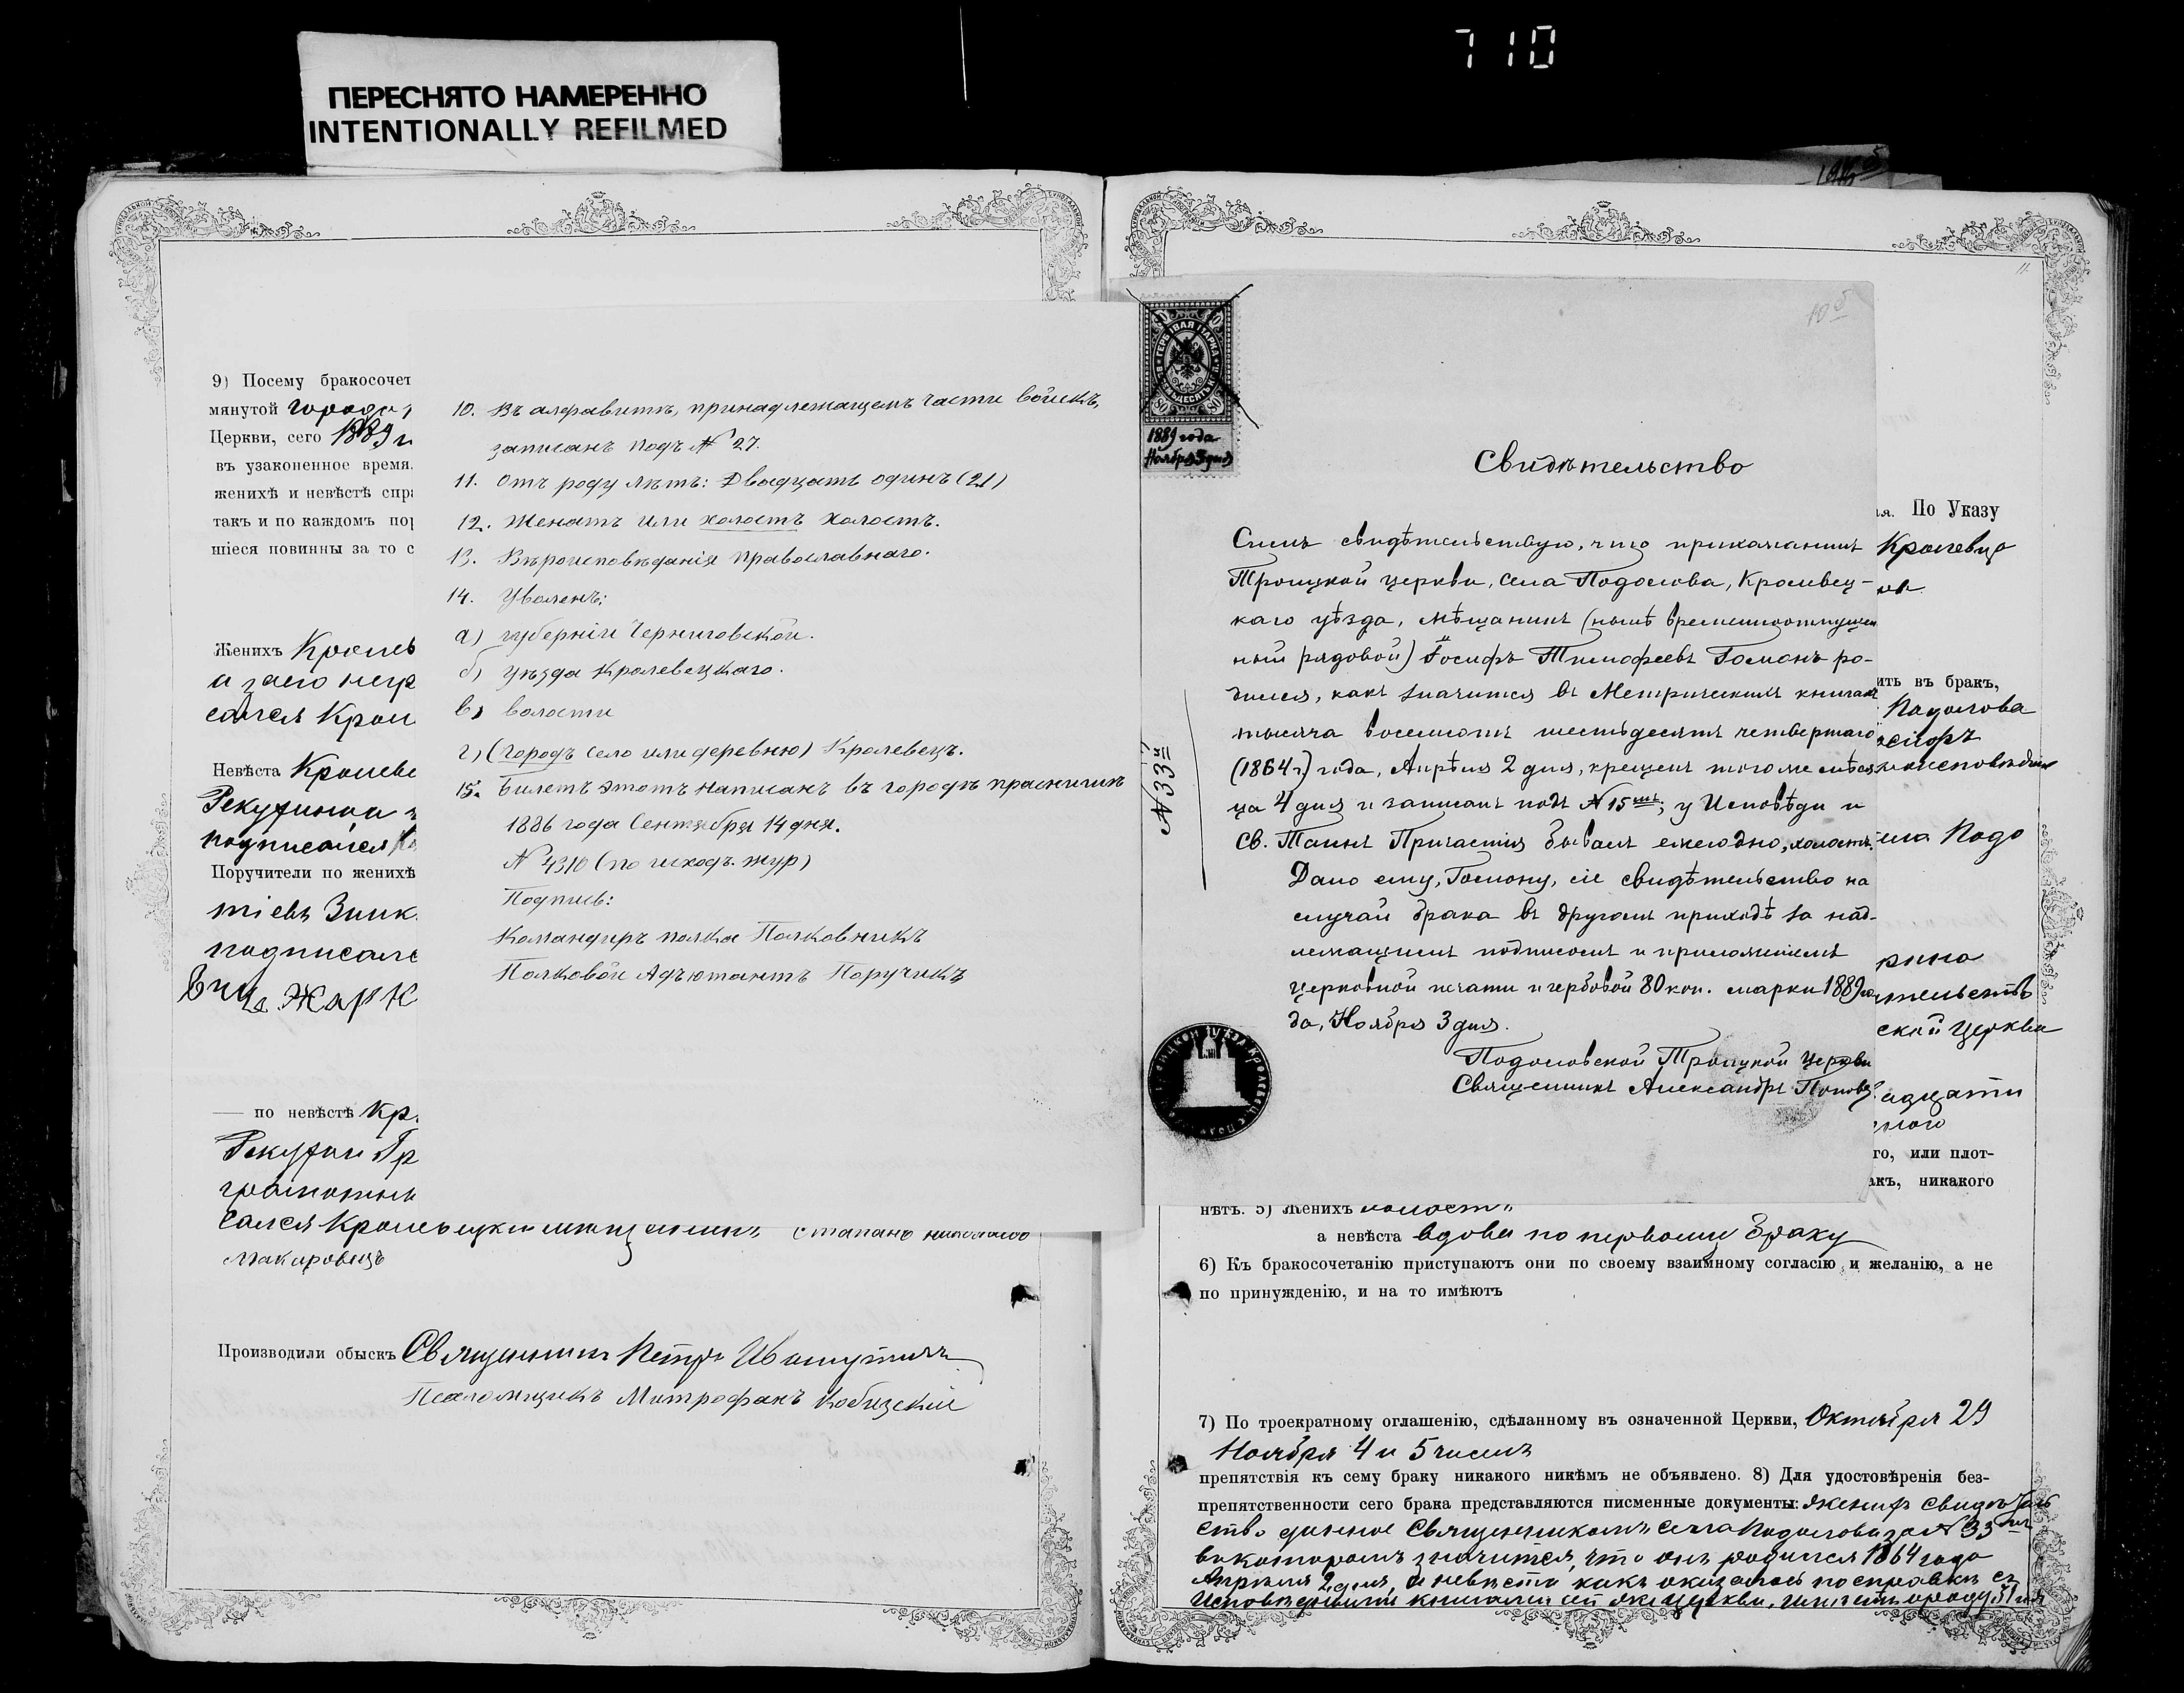 710
ПЕРЕСНЯТО НАМЕРЕННО
INTENTIONALLY REFILMED
9) Посему бракосочет
мянутой города
Церкви, сего 1889
въ узаконенное время.
женихѣ и невѣстѣ спра
такъ и по каждомъ пор
шіеся повинны за то с
Женихъ Кролев
а за его негр
сался Крол
Невѣста Кролеве
подписался
Поручители по женихѣ
подписалс
— по невѣстѣ Кр.
грамотны
сался Кролевецкій мещанинъ Степанъ
Макаровецъ
Производили обыскъ Священникъ Петръ
Псаломщикъ Митрофанъ Кобизскій
10. Въ алфавитѣ, принадлежащемъ части войскъ,
записанъ подъ № 27.
11. Отъ роду лѣтъ: Двадцать одинъ (21)
12. Женатъ или холостъ холостъ.
13. Вѣроисповѣданія православнаго.
14. Уволенъ:
а) губерніи Черниговской.
б) уѣзда Кролевецкаго.
в) волости
г) (городъ село или деревню) Кролевецъ.
15. Билетъ этотъ написанъ въ городѣ праснишѣ
1886 года Сентября 14 дня.
№ 4310 (по исход. жур)
Подпись:
Командиръ полка Полковникъ
Полковой Адъютантъ Поручикъ
10 б
11.
ГЕРБОВАЯ МАРКА
80 80
1889 года
Ноября 3 дня
№ 33й
Свидѣтельство
Симъ свидѣтельствую, что прихожанинъ
Троицкой церкви, села Подолова, Кролевец-
каго уѣзда, мѣщанинъ (нынѣ временноотпущен
ный рядовой) Іосифъ Тимофеевъ Гомонъ ро-
дился, какъ значится въ Метрическихъ книгахъ
тысяча восемьсотъ шестьдесятъ четвертаго
(1864 г.) года, Апрѣля 2 дня, крещенъ того же мѣся
ца 4 дня и записанъ подъ № 15мъ; у Исповѣди и
Св. Таинъ Причастія бывалъ ежегодно, холостъ.
Дано ему, Гомону, сіе свидѣтельство на
случай брака въ другомъ приходѣ за над-
лежащимъ подписомъ и приложеніемъ
церковной печати и гербовой 80 коп. марки 1889 го
да, Ноября 3 дня.
Подоловской Троицкой Церкви
Священникъ Александръ Поповъ
ія. По Указу
Кролевца
ить въ бракъ,
Подолова
сифъ
села Подо
ской Церкви
го, или плот-
акъ, никакого
нѣтъ. 5) Женихъ холостъ
а невѣста вдова по первому браку
6) Къ бракосочетанію приступаютъ они по своему взаимному согласію и желанію, а не
по принужденію, и на то имѣютъ
7) По троекратному оглашенію, сдѣланному въ означенной Церкви, Октября 29
Ноября 4 и 5 чиселъ
препятствія къ сему браку никакого никѣмъ не объявлено. 8) Для удостовѣренія без-
препятственности сего брака представляются писменные документы: Женихъ свидѣтель
ство данное Священникомъ села Подолова за № 33мъ
въ которомъ значится, что онъ родился 1864 года
Апрѣля 2 дня, а невѣста какъ оказалось по справкѣ съ
Исповѣдными книгами сей же церкви, имѣетъ отъ роду 31 годъ